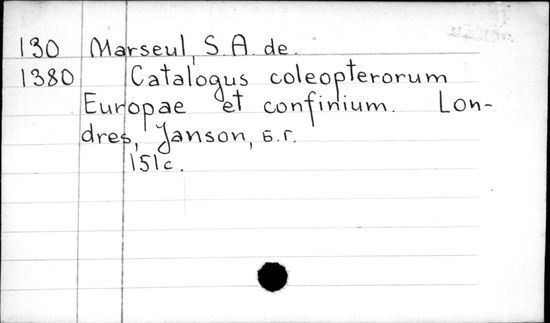 130 Marseul, S.A. de.
1380 Catalogus coleopterorum
Europae et confinium. Lon-
dres, Janson, б.г.
151с.